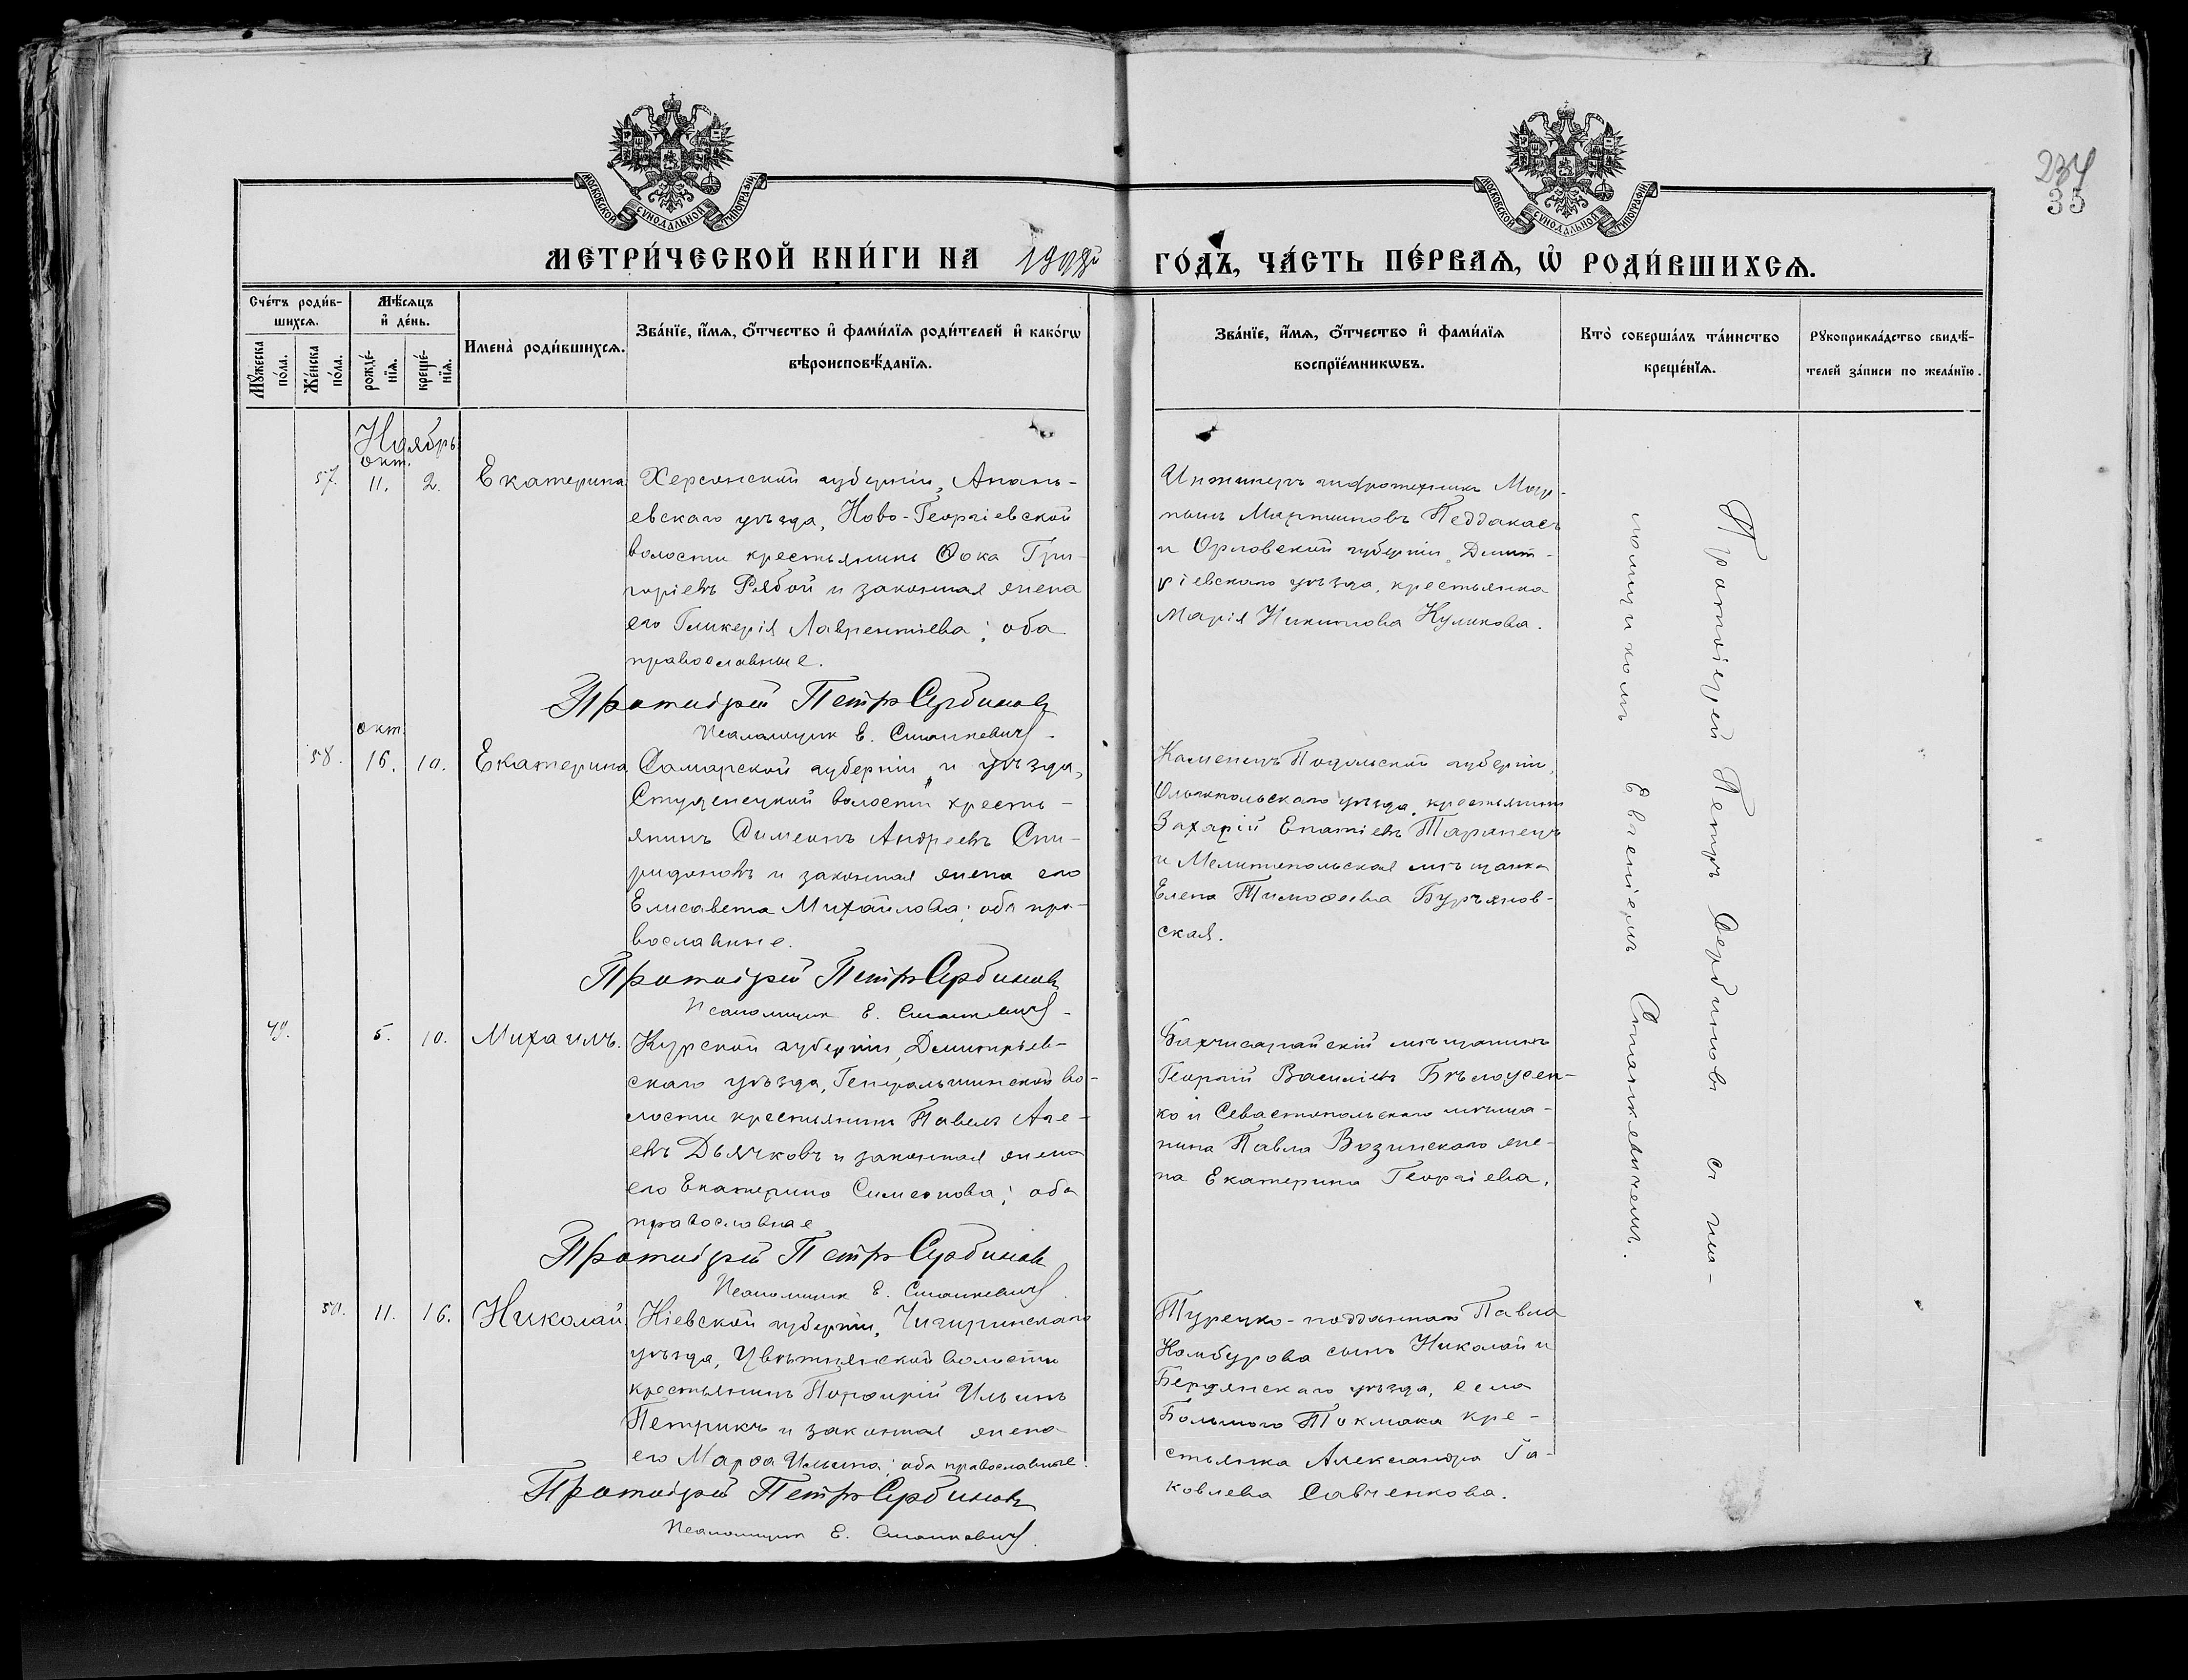 234
35
МОСКОВСКОЙ СѴНОДАЛЬНОЙ ТИПОГРАФІИ
МОСКОВСКОЙ СѴНОДАЛЬНОЙ ТИПОГРАФІИ
МЕТРИ́ЧЕСКОЙ КНИ́ГИ НА
ГО́ДЪ, ЧА́СТЬ ПЕ́РВАѦ, Ѡ҆ РОДИ́ВШИХСѦ.
Сче́тъ роди́в-
шихсѧ.
Мѣ́сѧцъ
и҆ де́нь.
Мꙋ́жеска
по́ла.
Же́нска
по́ла.
рожде́-
нїѧ.
креще́-
нїѧ.
Имена̀ роди́вшихсѧ.
Зва́нїе, и҆́мѧ, ѻ҆́тчество и҆ фами́лїѧ роди́телей и҆ како́гѡ
вѣроисповѣ́данїѧ.
Зва́нїе, и҆́мѧ, ѻ҆́тчество и҆ фами́лїѧ
воспрїе́мникѡвъ.
Кто̀ соверша́лъ та́инство
креще́нїѧ.
Рꙋкоприкла́дство свидѣ́-
телей за́писи по жела́нїю.
Ноябрь
окт.
57. 11. 2. Екатерина
Херсонской губерніи, Анань-
евскаго уѣзда, Ново-Георгіевской
волости крестьянинъ Ѳока Гри-
горіевъ Рябой и законная жена
его Гликерія Лаврентіева; оба
православные.
Протоіерей Петръ Сербиновъ
Псаломщик Е. Станкевичъ.
Инженеръ гидротехникъ Мар-
тынъ Мартыновъ Педдакасъ
и Орловской губерніи, Дмит-
ріевскаго уѣзда, крестьянка
Марія Никитова Куликова.
окт.
58. 16. 10. Екатерина
Самарской губерніи и уѣзда,
Студенецкой волости кресть-
янинъ Симеонъ Андреевъ Спи-
ридоновъ и законная жена его
Елисавета Михайлова; оба пра-
вославные.
Протоіерей Петръ Сербиновъ
Псаломщик Е. Станкевичъ.
Каменецъ Подольской губерніи,
Ольгопольскаго уѣзда, крестьянинъ
Захарій Епатіевъ Таранецъ
и Мелитопольская мѣщанка
Елена Тимоѳеева Бурьянов-
ская.
49. 5. 10. Михаилъ.
Курской губерніи, Дмитрьев-
скаго уѣзда, Генеральшинской во-
лости крестьянинъ Павелъ Аге-
евъ Дьячковъ и законная жена
его Екатерина Симеонова; оба
православные
Протоіерей Петръ Сербиновъ
Псаломщик Е. Станкевичъ.
Бахчисарайскій мѣщанинъ
Георгій Василіевъ Бѣлоусен-
ко и Севастопольскаго мѣща-
нина Павла Возинскаго же-
на Екатерина Георгіева.
50. 11. 16. Николай
Кіевской губерніи, Чигиринскаго
уѣзда, Цвѣтнянской волости
крестьянинъ Порфирій Ильинъ
Петрикъ и законная жена
его Марѳа Ильина; оба православные.
Протоіерей Петръ Сербиновъ
Псаломщик Е. Станкевичъ.
Турецко-подданнаго Павла
Камбурова сынъ Николай и
Бердянскаго уѣзда, села
Большого Токмака кре-
стьянка Александра Іа-
ковлева Савченкова.
Протоіерей Петръ Сербиновъ съ пса-
ломщикомъ Евгеніемъ Станкевичемъ.